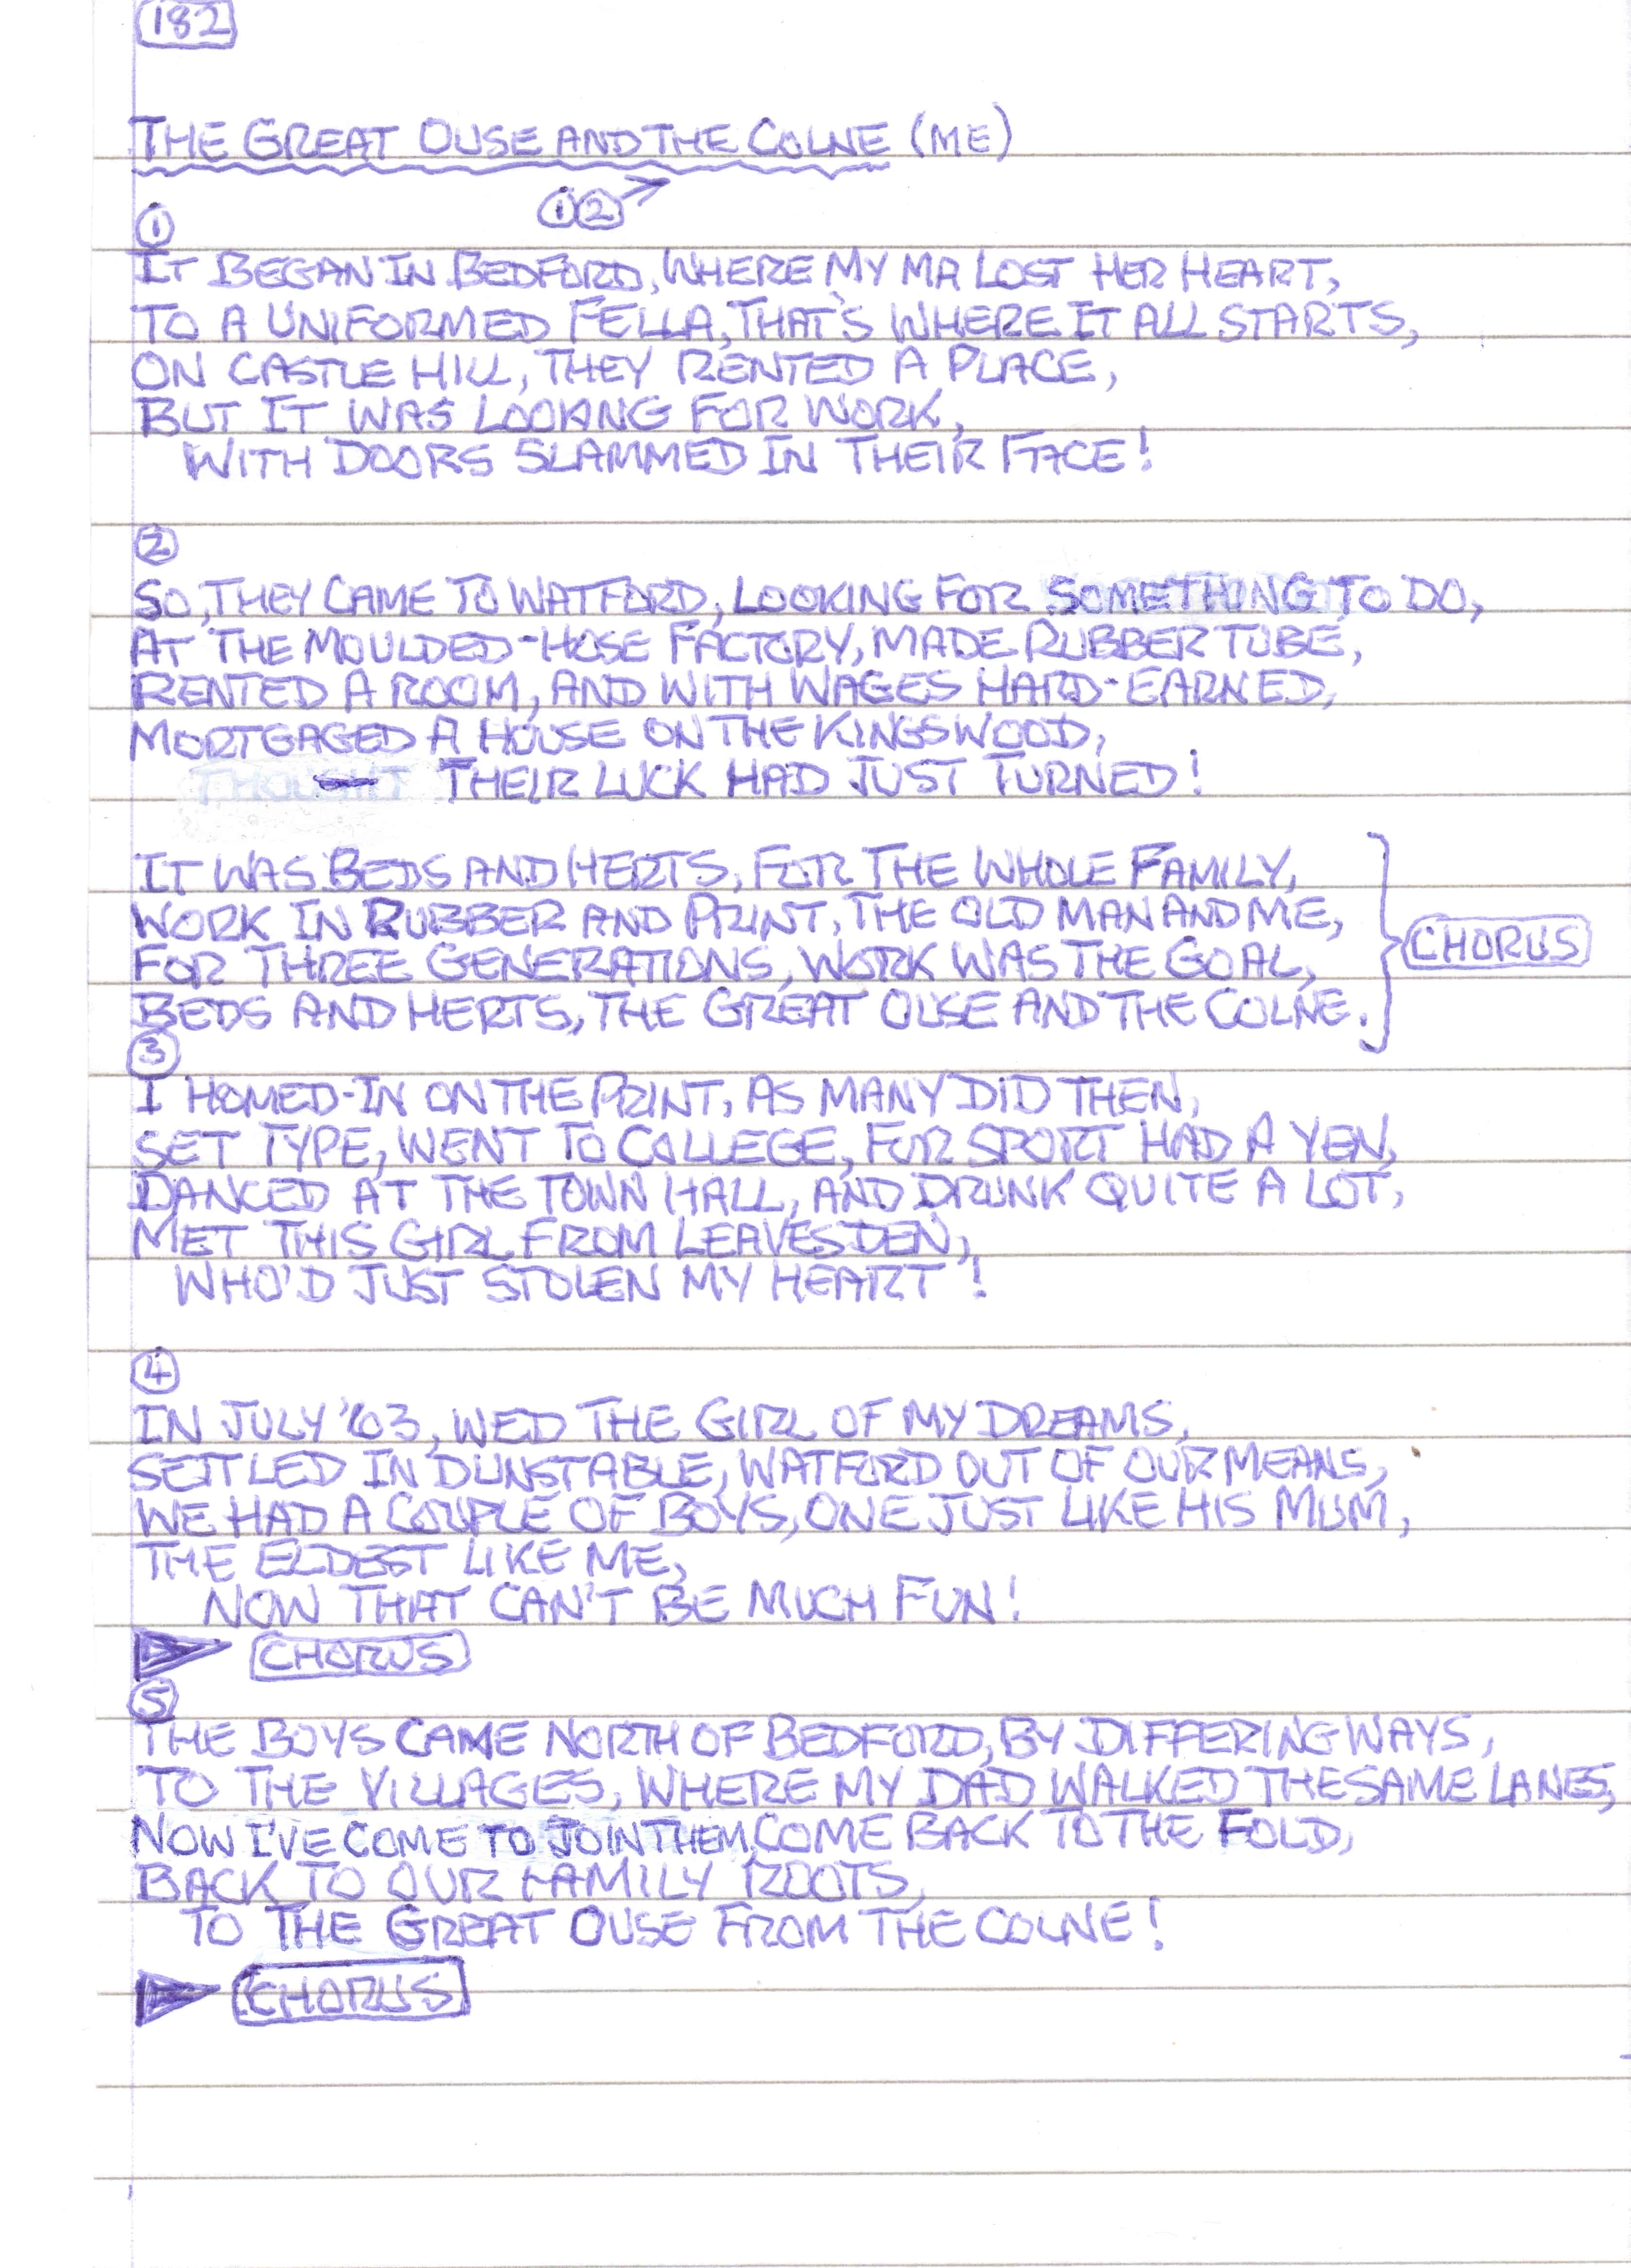 182
THE GREAT OUSE AND THE COLNE (ME)
1 2 →
1
IT BEGAN IN BEDFORD, WHERE MY MA LOST HER HEART,
TO A UNIFORMED FELLA, THAT'S WHERE IT ALL STARTS,
ON CASTLE HILL, THEY RENTED A PLACE,
BUT IT WAS LOOKING FOR WORK,
WITH DOORS SLAMMED IN THEIR FACE!
2
SO, THEY CAME TO WATFORD, LOOKING FOR SOMETHING TO DO,
AT THE MOULDED-HOSE FACTORY, MADE RUBBER TUBE,
RENTED A ROOM, AND WITH WAGES HARD-EARNED,
MORTGAGED A HOUSE ON THE KINGSWOOD,
THOUGHT THEIR LUCK HAD JUST TURNED!
IT WAS BEDS AND HERTS, FOR THE WHOLE FAMILY,
WORK IN RUBBER AND PRINT, THE OLD MAN AND ME,
CHORUS
FOR THREE GENERATIONS, WORK WAS THE GOAL,
BEDS AND HERTS, THE GREAT OUSE AND THE COLNE.
3
I HOMED-IN ON THE PRINT, AS MANY DID THEN,
SET TYPE, WENT TO COLLEGE, FOR SPORT HAD A YEN,
DANCED AT THE TOWN HALL, AND DRUNK QUITE A LOT,
MET THIS GIRL FROM LEAVESDEN,
WHO'D JUST STOLEN MY HEART!
4
IN JULY '63, WED THE GIRL OF MY DREAMS,
SETTLED IN DUNSTABLE, WATFORD OUT OF OUR MEANS,
WE HAD A COUPLE OF BOYS, ONE JUST LIKE HIS MUM,
THE ELDEST LIKE ME,
NOW THAT CAN'T BE MUCH FUN!
CHORUS
5
THE BOYS CAME NORTH OF BEDFORD, BY DIFFERING WAYS,
TO THE VILLAGES, WHERE MY DAD WALKED THE SAME LANES,
NOW I'VE COME TO JOIN THEM, COME BACK TO THE FOLD,
BACK TO OUR FAMILY ROOTS,
TO THE GREAT OUSE FROM THE COLNE!
CHORUS